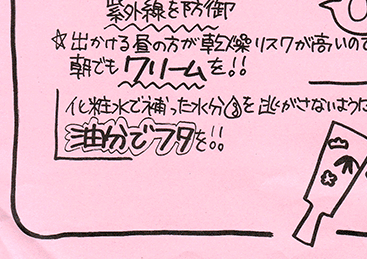 紫外線を防御
☆出かける昼の方が乾燥リスクが高いので
朝でもクリームを!!
化粧水で補った水分を逃がさないように
油分でフタを!!